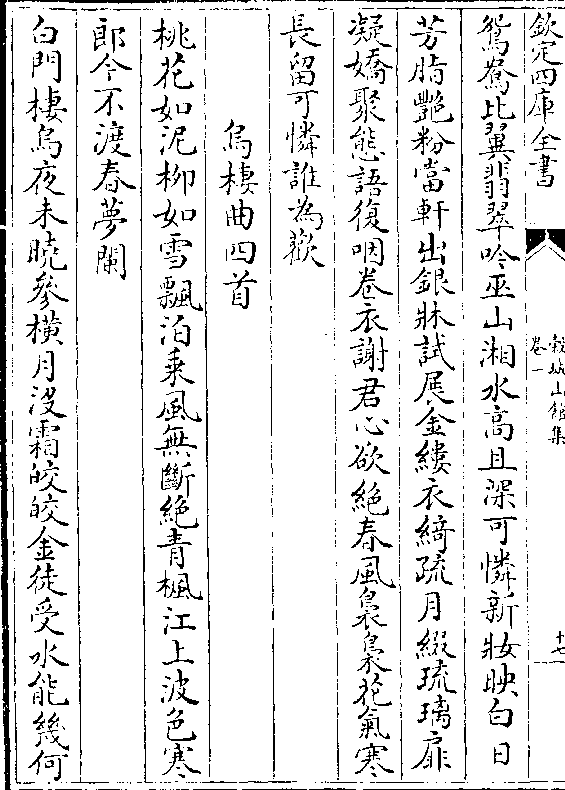 欽定四庫全書
穀城山館集
卷一
十七
鴛鴦比翼翡翠吟巫山湘水高且深可憐新妝映白日
芳脂艶粉當軒出銀牀試展金縷衣綺疏月綴琉璃扉
凝嬌聚態語復咽卷衣謝君心欲絶春風裊裊花氣寒
長留可憐誰為歡
烏棲曲四首
桃花如泥柳如雪飄泊乘風無斷絶青楓江上波色寒
郎今不渡春夢闌
白門棲烏夜未曉參橫月沒霜皎皎金徒受水能幾何